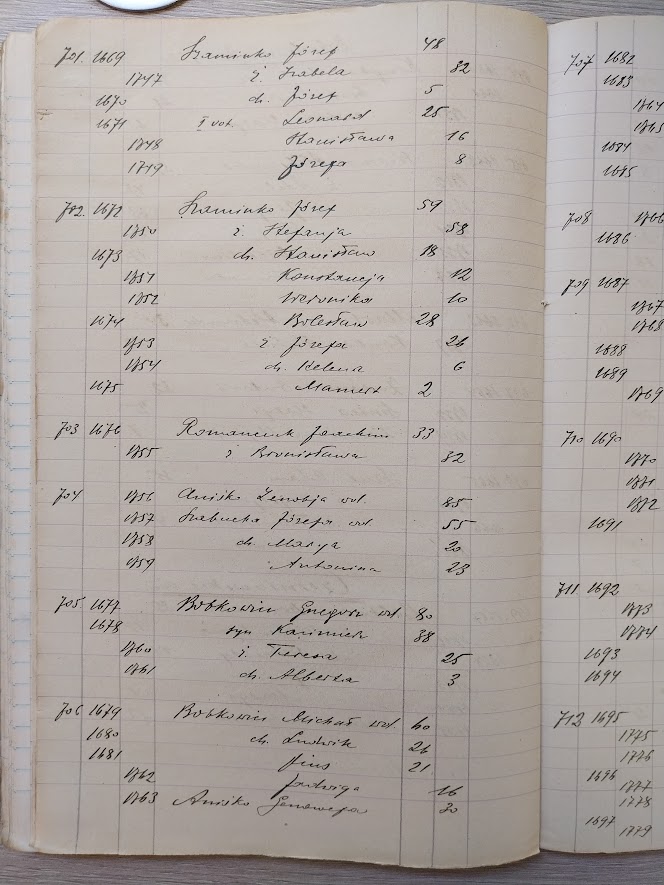 701. 1669 Szaminko Józef 48
1747 ż. Izabela 32
1670 ch. Józef 5
1671 I vot. Leonard 25
1748 Stanisława 16
1749 Józefa 8
702. 1672 Szaminko Józef 59
1750 ż. Stefanja 58
1673 ch. Stanisław 18
1751 Konstancja 12
1752 Weronika 10
1674 Bolesław 28
1753 ż Józefa 26
1754 ch. Helena 6
1675 Mamert 2
703 1676 Romanciuk Joachim 33
1755 ż Bronisława 32
704 1756 Aniśko Zenobja wd. 85
1757 Józefa wd 55
1758 ch. Marja 20
1759 Antonina 23
705. 1677 Bobkowicz Gregorz wd. 80
1678 syn Kazimierz 38
1760 ż. Teresa 25
1761 ch. Alberta 3
706 1679 Bobkowicz Michał wd. 60
1680 ch. Ludwik 26
1681 Pius 21
1762 Jadwiga 16
1763 Aniśko Genowefa 30
707 1682
1683
1764
1765
1684
1685
708 1766
1686
709 1687
1767
1768
1688
1689
1769
710 1690
1770
1771
1772
1691
711 1692
1773
1774
1693
1694
712 1695
1775
1776
1696
1777
1778
1697
1779